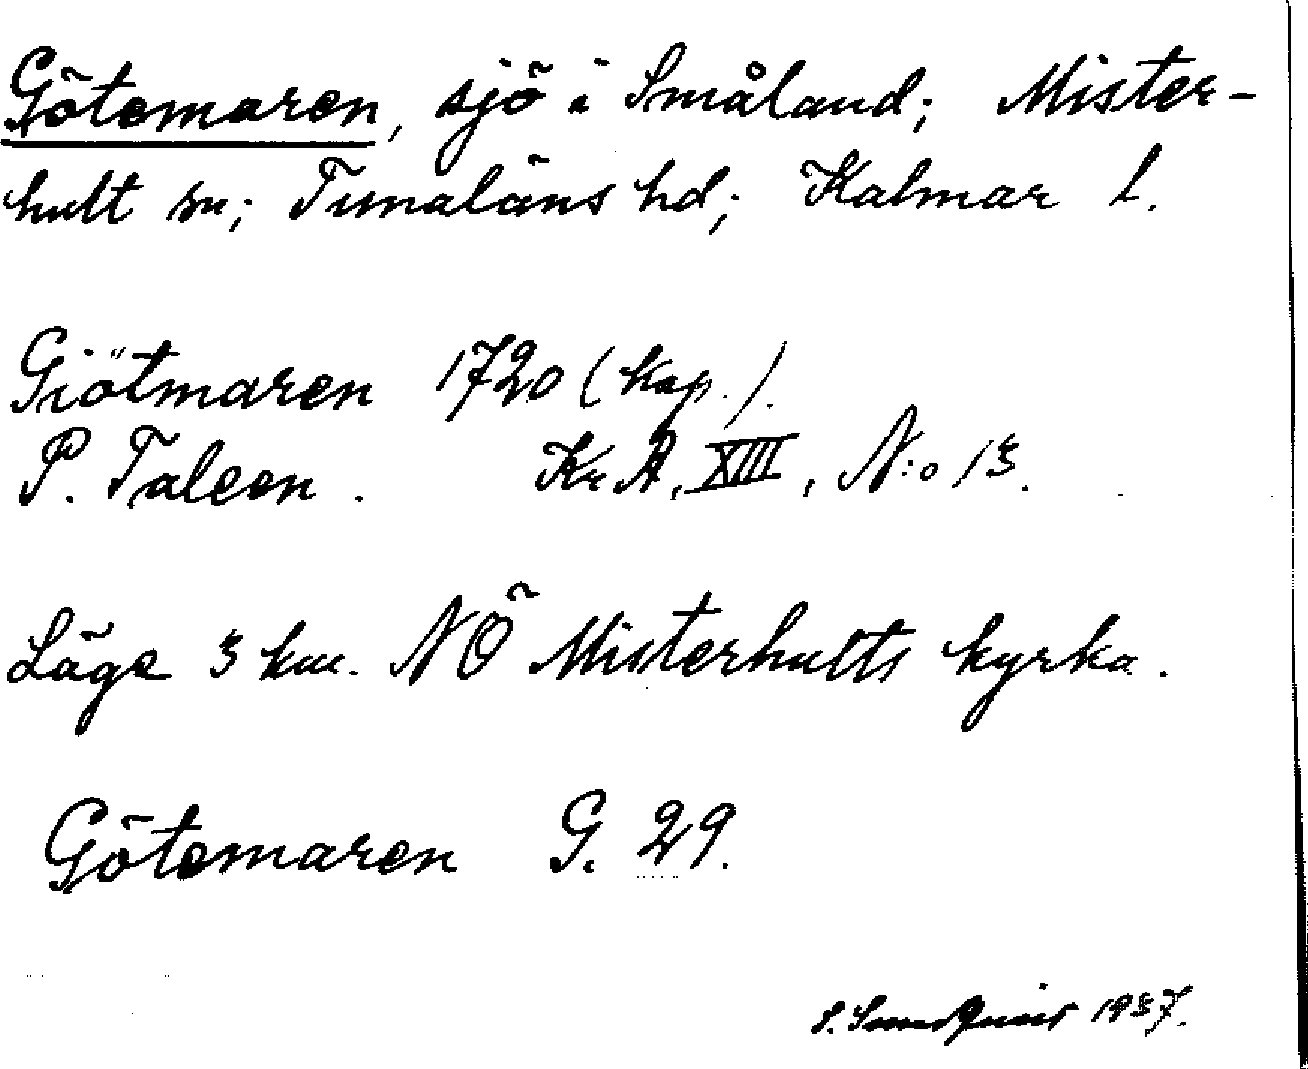 Götemaren, sjö i Småland; Mister-
hult sn; Tunaläns hd; Kalmar l.
Giötmaren 1720 (kap.).
P. Taleen. Kr A, XIII, N:o 13.
Läge 3 km. NÖ Misterhults kyrka.
Götemaren G. 29.
1937.